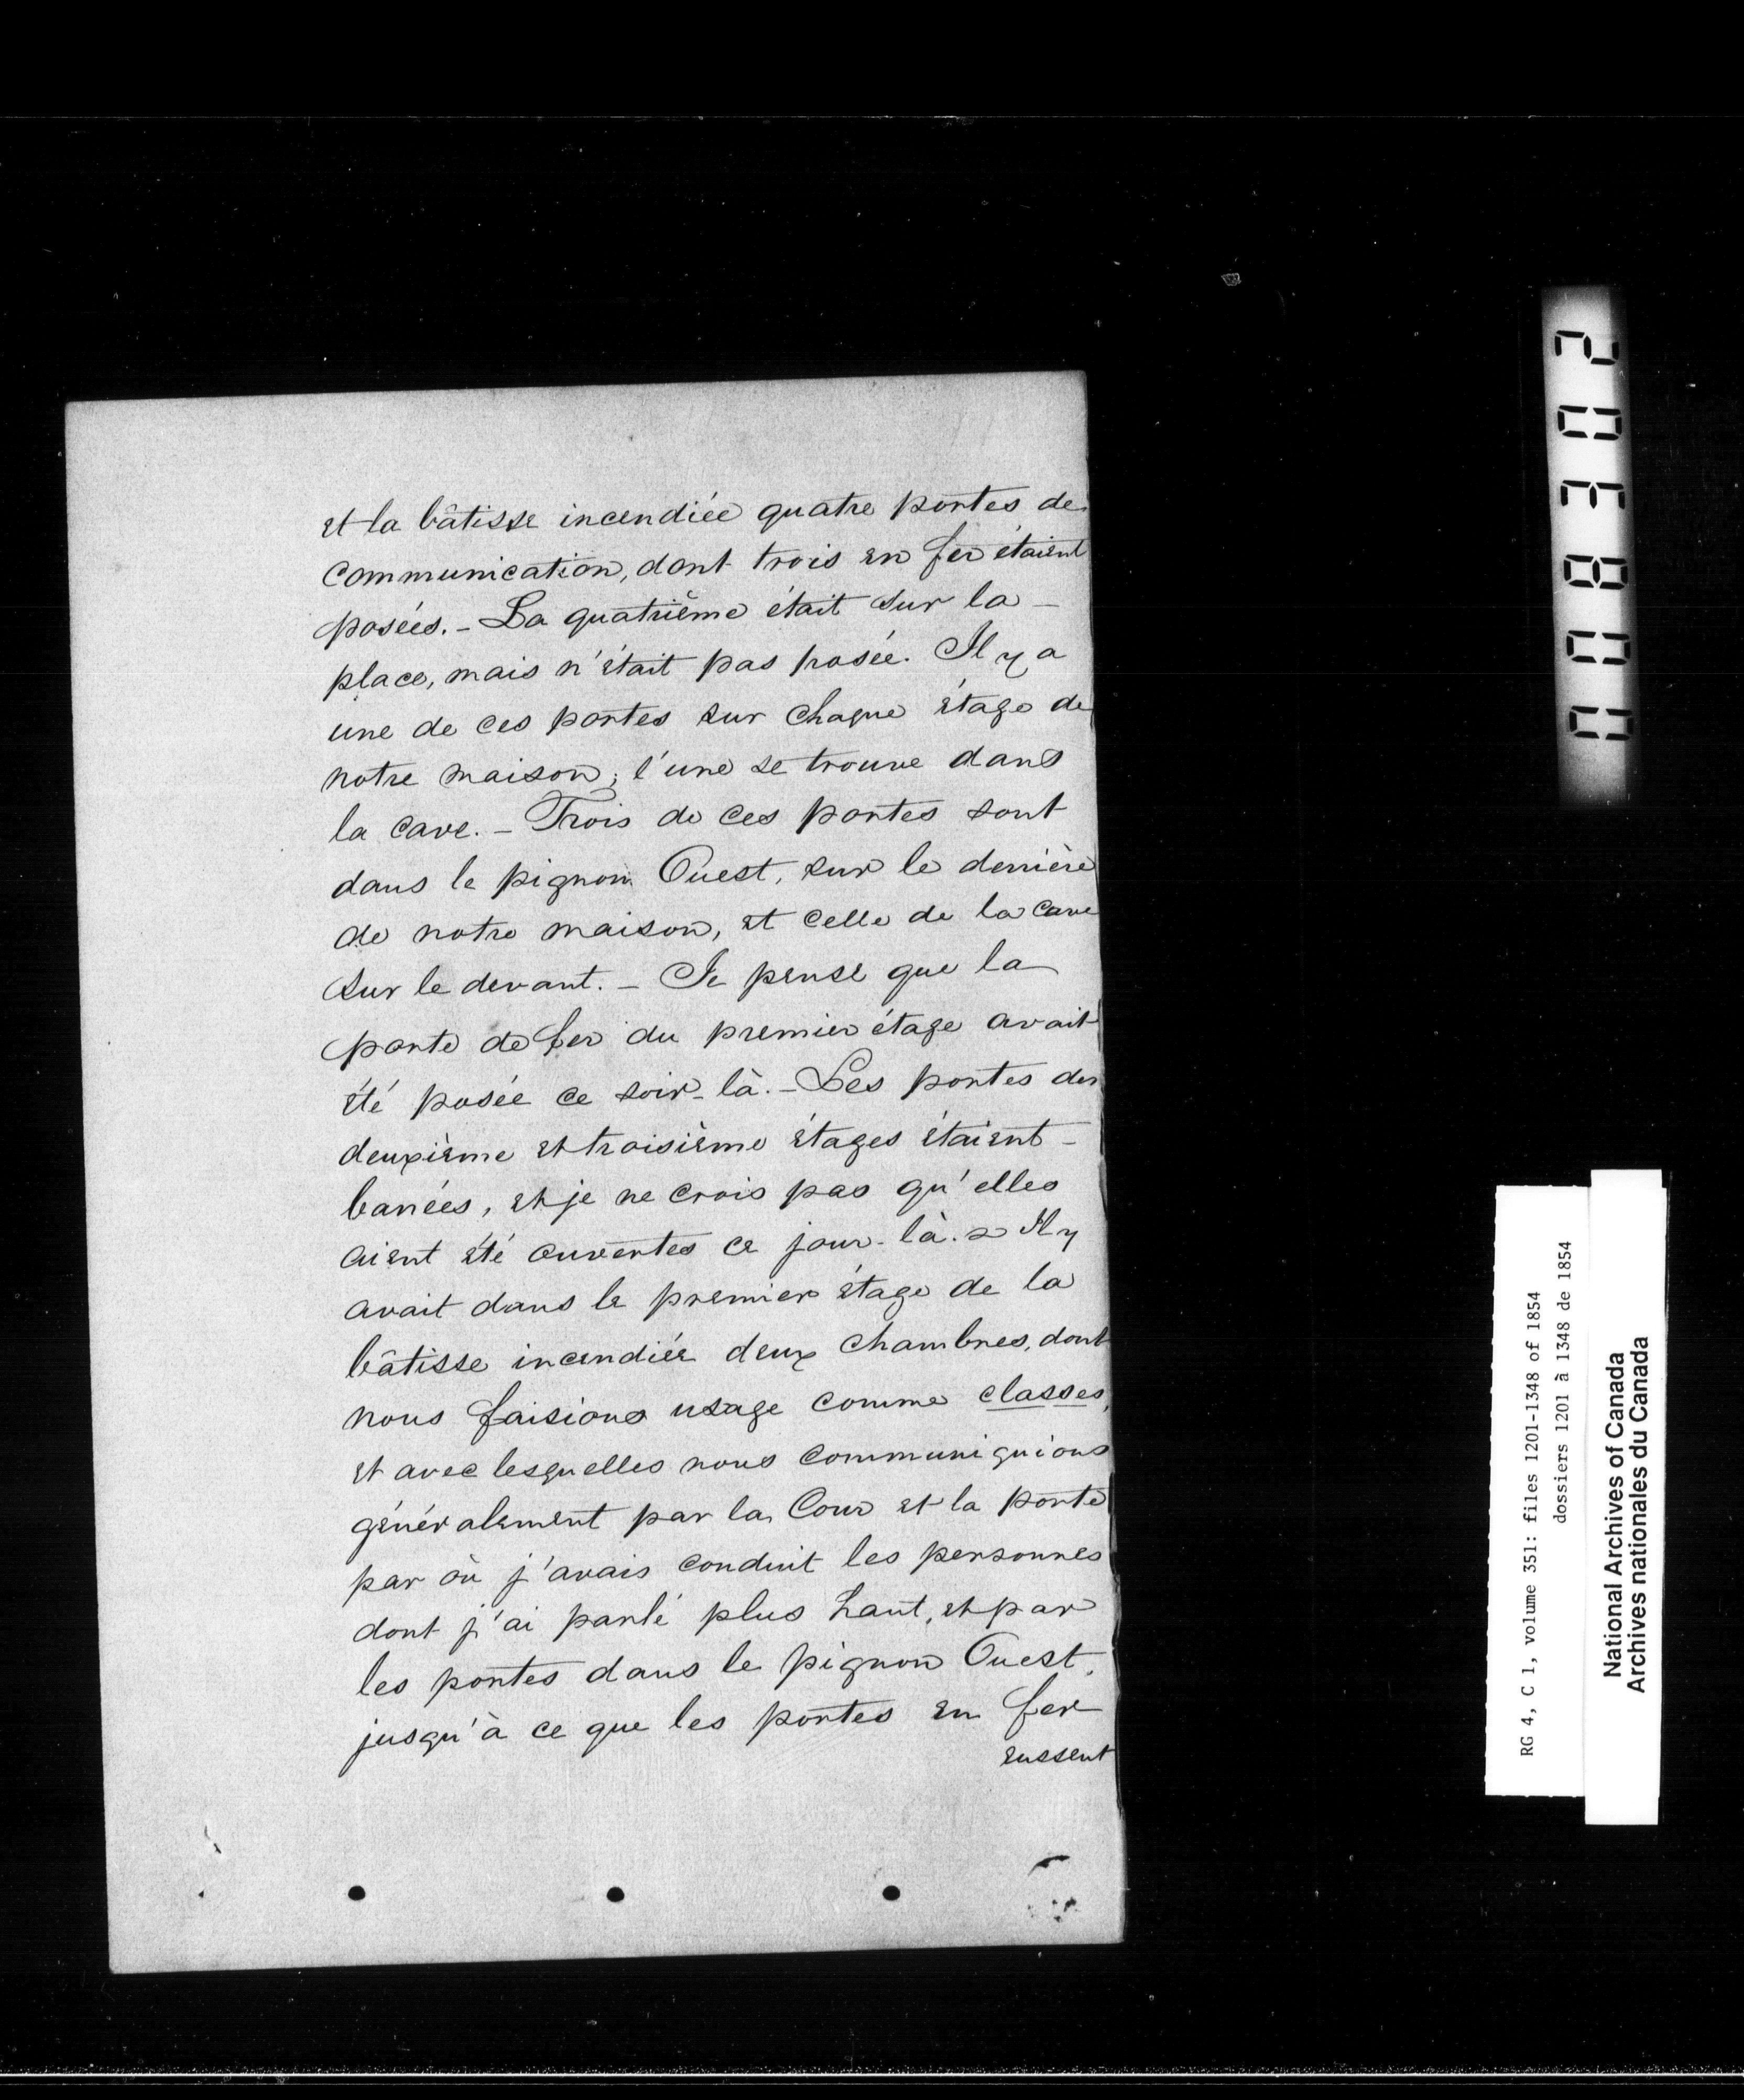 et la bâtisse incendiée quatre portes de
communication, dont trois en fer étaient
posées. - La quatrième était sur la -
place, mais n'était pas posée. Il y a
une de ces portes sur chaque étage de
notre maison; l'une se trouve dans
la cave. - Trois de ces portes sont
dans le pignon Ouest, sur le derrière
de notre maison, et celle de la cave
sur le devant. - Je pense que la
porte de fer du premier étage avait
été posée ce soir-là. - Les portes des
deuxième et troisième étages étaient -
barrées, et je ne crois pas qu'elles
aient été ouvertes ce jour-là. Il y
avait dans le premier étage de la
bâtisse incendiée deux chambres, dont
nous faisions usage comme classes,
et avec lesquelles nous communiquions
généralement par la Cour et la porte
par où j'avais conduit les personnes
dont j'ai parlé plus haut, et par
les portes dans le pignon Ouest,
jusqu'à ce que les portes en fer
eussent
203800
RG 4, C 1, volume 351: files 1201-1348 of 1854
dossiers 1201 à 1348 de 1854
National Archives of Canada
Archives nationales du Canada